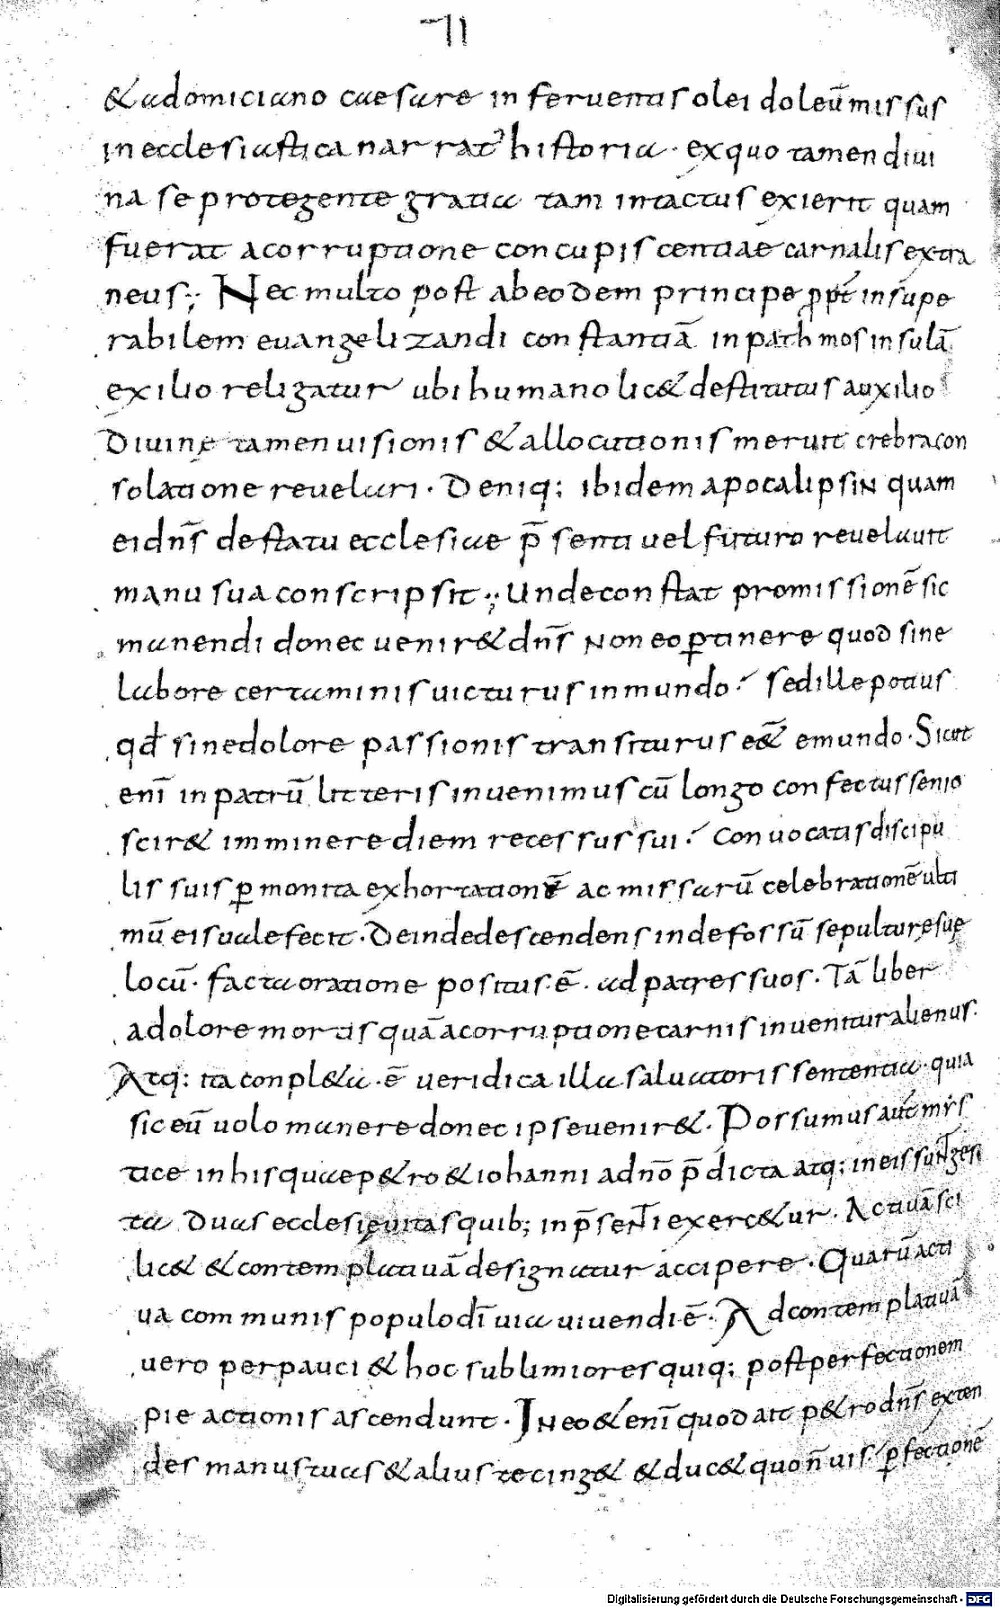 ⁊II
& a domiciano caesare in feruentis olei doleū missus
in ecclesiastica narrat᷑ historia · ex quo tamen diui
na se protegente gratia tam intactus exierit quam
fuerat a corruptione concupiscentiae carnalis extra
neus ·,· Nec multo post ab eodem principe ꝓpt̄ insupe
rabilem euangelizandi constantiā in pathmos insulā
exilio religatur ubi humano lic& destitutus auxilio
diuinę tamen uisionis & allocutionis meruit crebra con
solatione releuari · Deniq; ibidem apocalipsin quam
ei dn̄s de statu ecclesiae p̄senti uel futuro reuelauit
manu sua conscripsit ·,· Unde constat promissionē sic
manendi donec uenir& dn̄s non eo ꝑtinere quod sine
labore certaminis uicturus in mundo · sed ille potius
qđ sine dolore passionis transiturus e&̄ e mundo · Sicut
enī in patrū litteris inuenimus cū longo confectus senio
scir& imminere diem recessus sui · conuocatis discipu
lis suis ꝑ monita exhortationē ac missarū celebrationē ulti
mū eis uale fecit · Deinde descendens in defossū sepulturę suę
locū · facta oratione positus · ē · ad patres suos · Tā liber
a dolore mortis quā a corruptione carnis inuenitur alienus ·
Atq; ita conpl&a · ē ueridica illa saluatoris sententia · quia
sic eū uolo manere donec ipse uenir& · Possumus aūt mẏs
tice in his quae p&ro & iohanni a dn̄o p̄dicta atq; in eis sunt ges
ta duas ecclesię uitas quib; in p̄senti exerc&ur · Actiuā sci
lic& & contemplatiuā designatur accipere · Quarū acti
ua communis populo dī uia uiuendi ē · Ad contemplatiuā
uero perpauci & hoc sublimiores quiq; post perfectionem
pie actionis ascendunt · In eo & enī quod ait p&ro dn̄s exten
des manus tuas & alius te cing& & duc& quo n̄ uis · ꝑfectionē
Digitalisierung gefördert durch die Deutsche Forschungsgemeinschaft - DFG